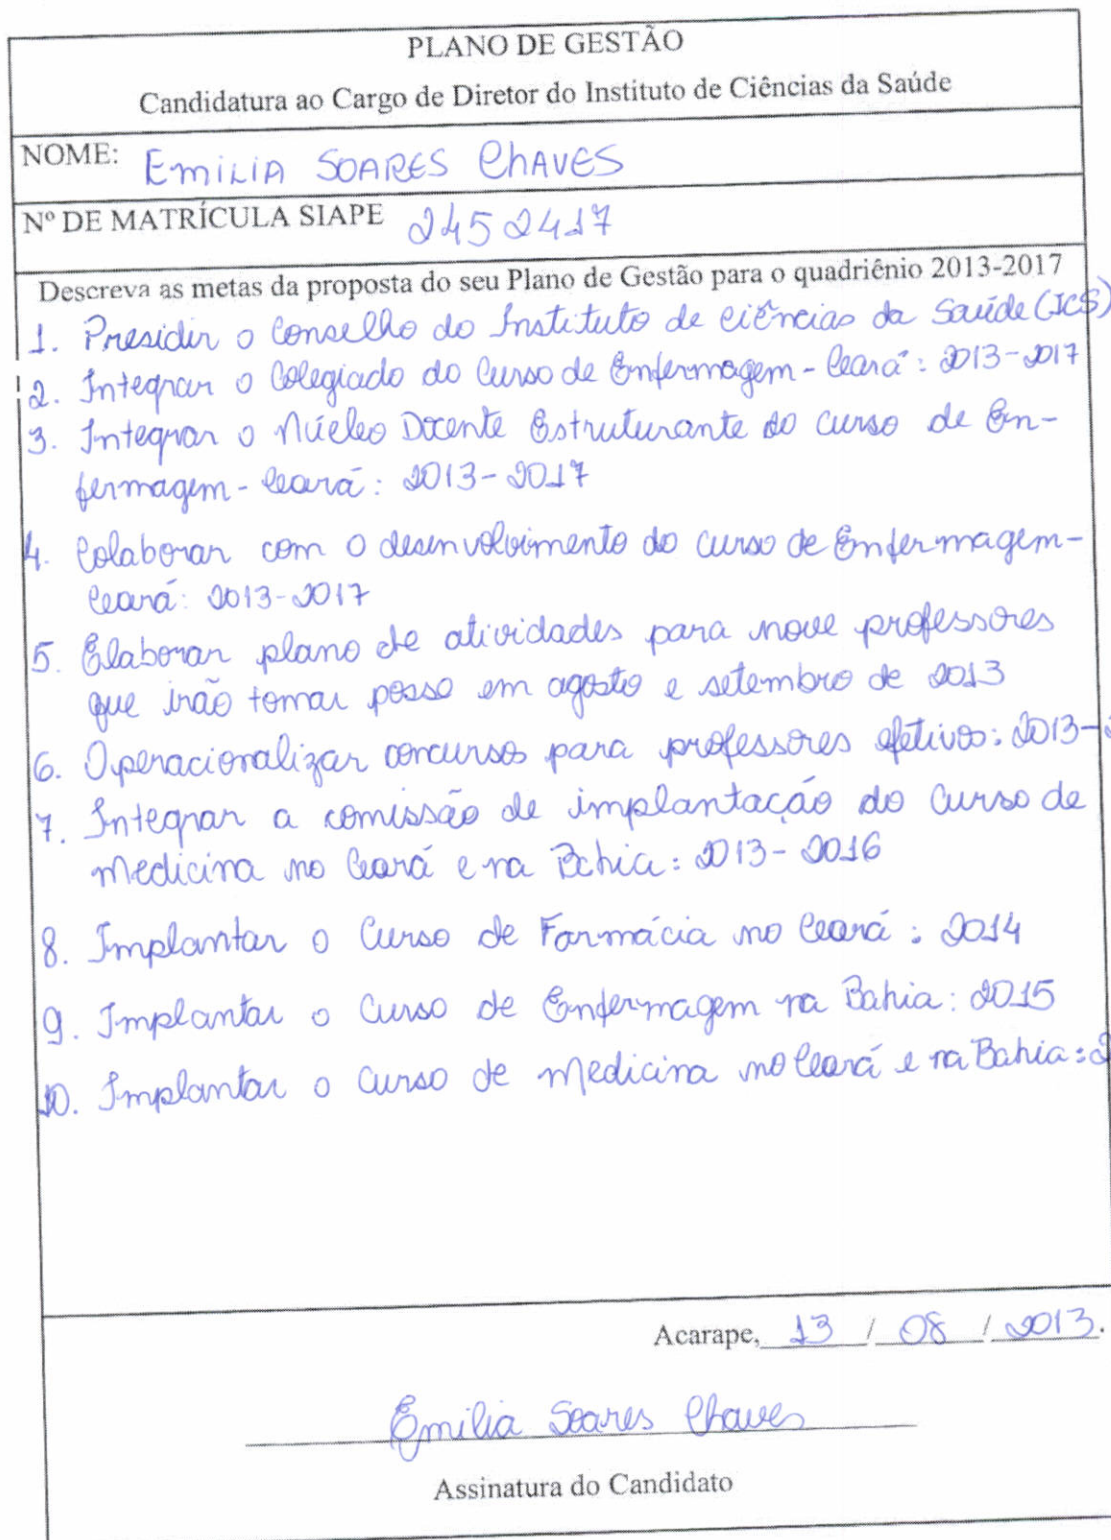 PLANO DE GESTÃO
Candidatura ao Cargo de Diretor do Instituto de Ciências da Saúde
NOME: EMILIA SOARES CHAVES
Nº DE MATRÍCULA SIAPE 2452417
Descreva as metas da proposta do seu Plano de Gestão para o quadriênio 2013-2017
1. Presidir o Conselho do Instituto de Ciências da Saúde (ICS)
2. Integrar o Colegiado do Curso de Enfermagem - Ceará: 2013-2017
3. Integrar o Núcleo Docente Estruturante do curso de En-
fermagem - Ceará: 2013-2017
4. Colaborar com o desenvolvimento do curso de Enfermagem-
Ceará: 2013-2017
5. Elaborar plano de atividades para nove professores
que irão tomar posse em agosto e setembro de 2013
6. Operacionalizar concursos para professores efetivos: 2013-
7. Integrar a comissão de implantação do Curso de
Medicina no Ceará e na Bahia: 2013-2016
8. Implantar o Curso de Farmácia no Ceará: 2014
9. Implantar o Curso de Enfermagem na Bahia: 2015
10. Implantar o Curso de Medicina no Ceará e na Bahia:
Acarape, 13 / 08 / 2013.
Emilia Soares Chaves
Assinatura do Candidato